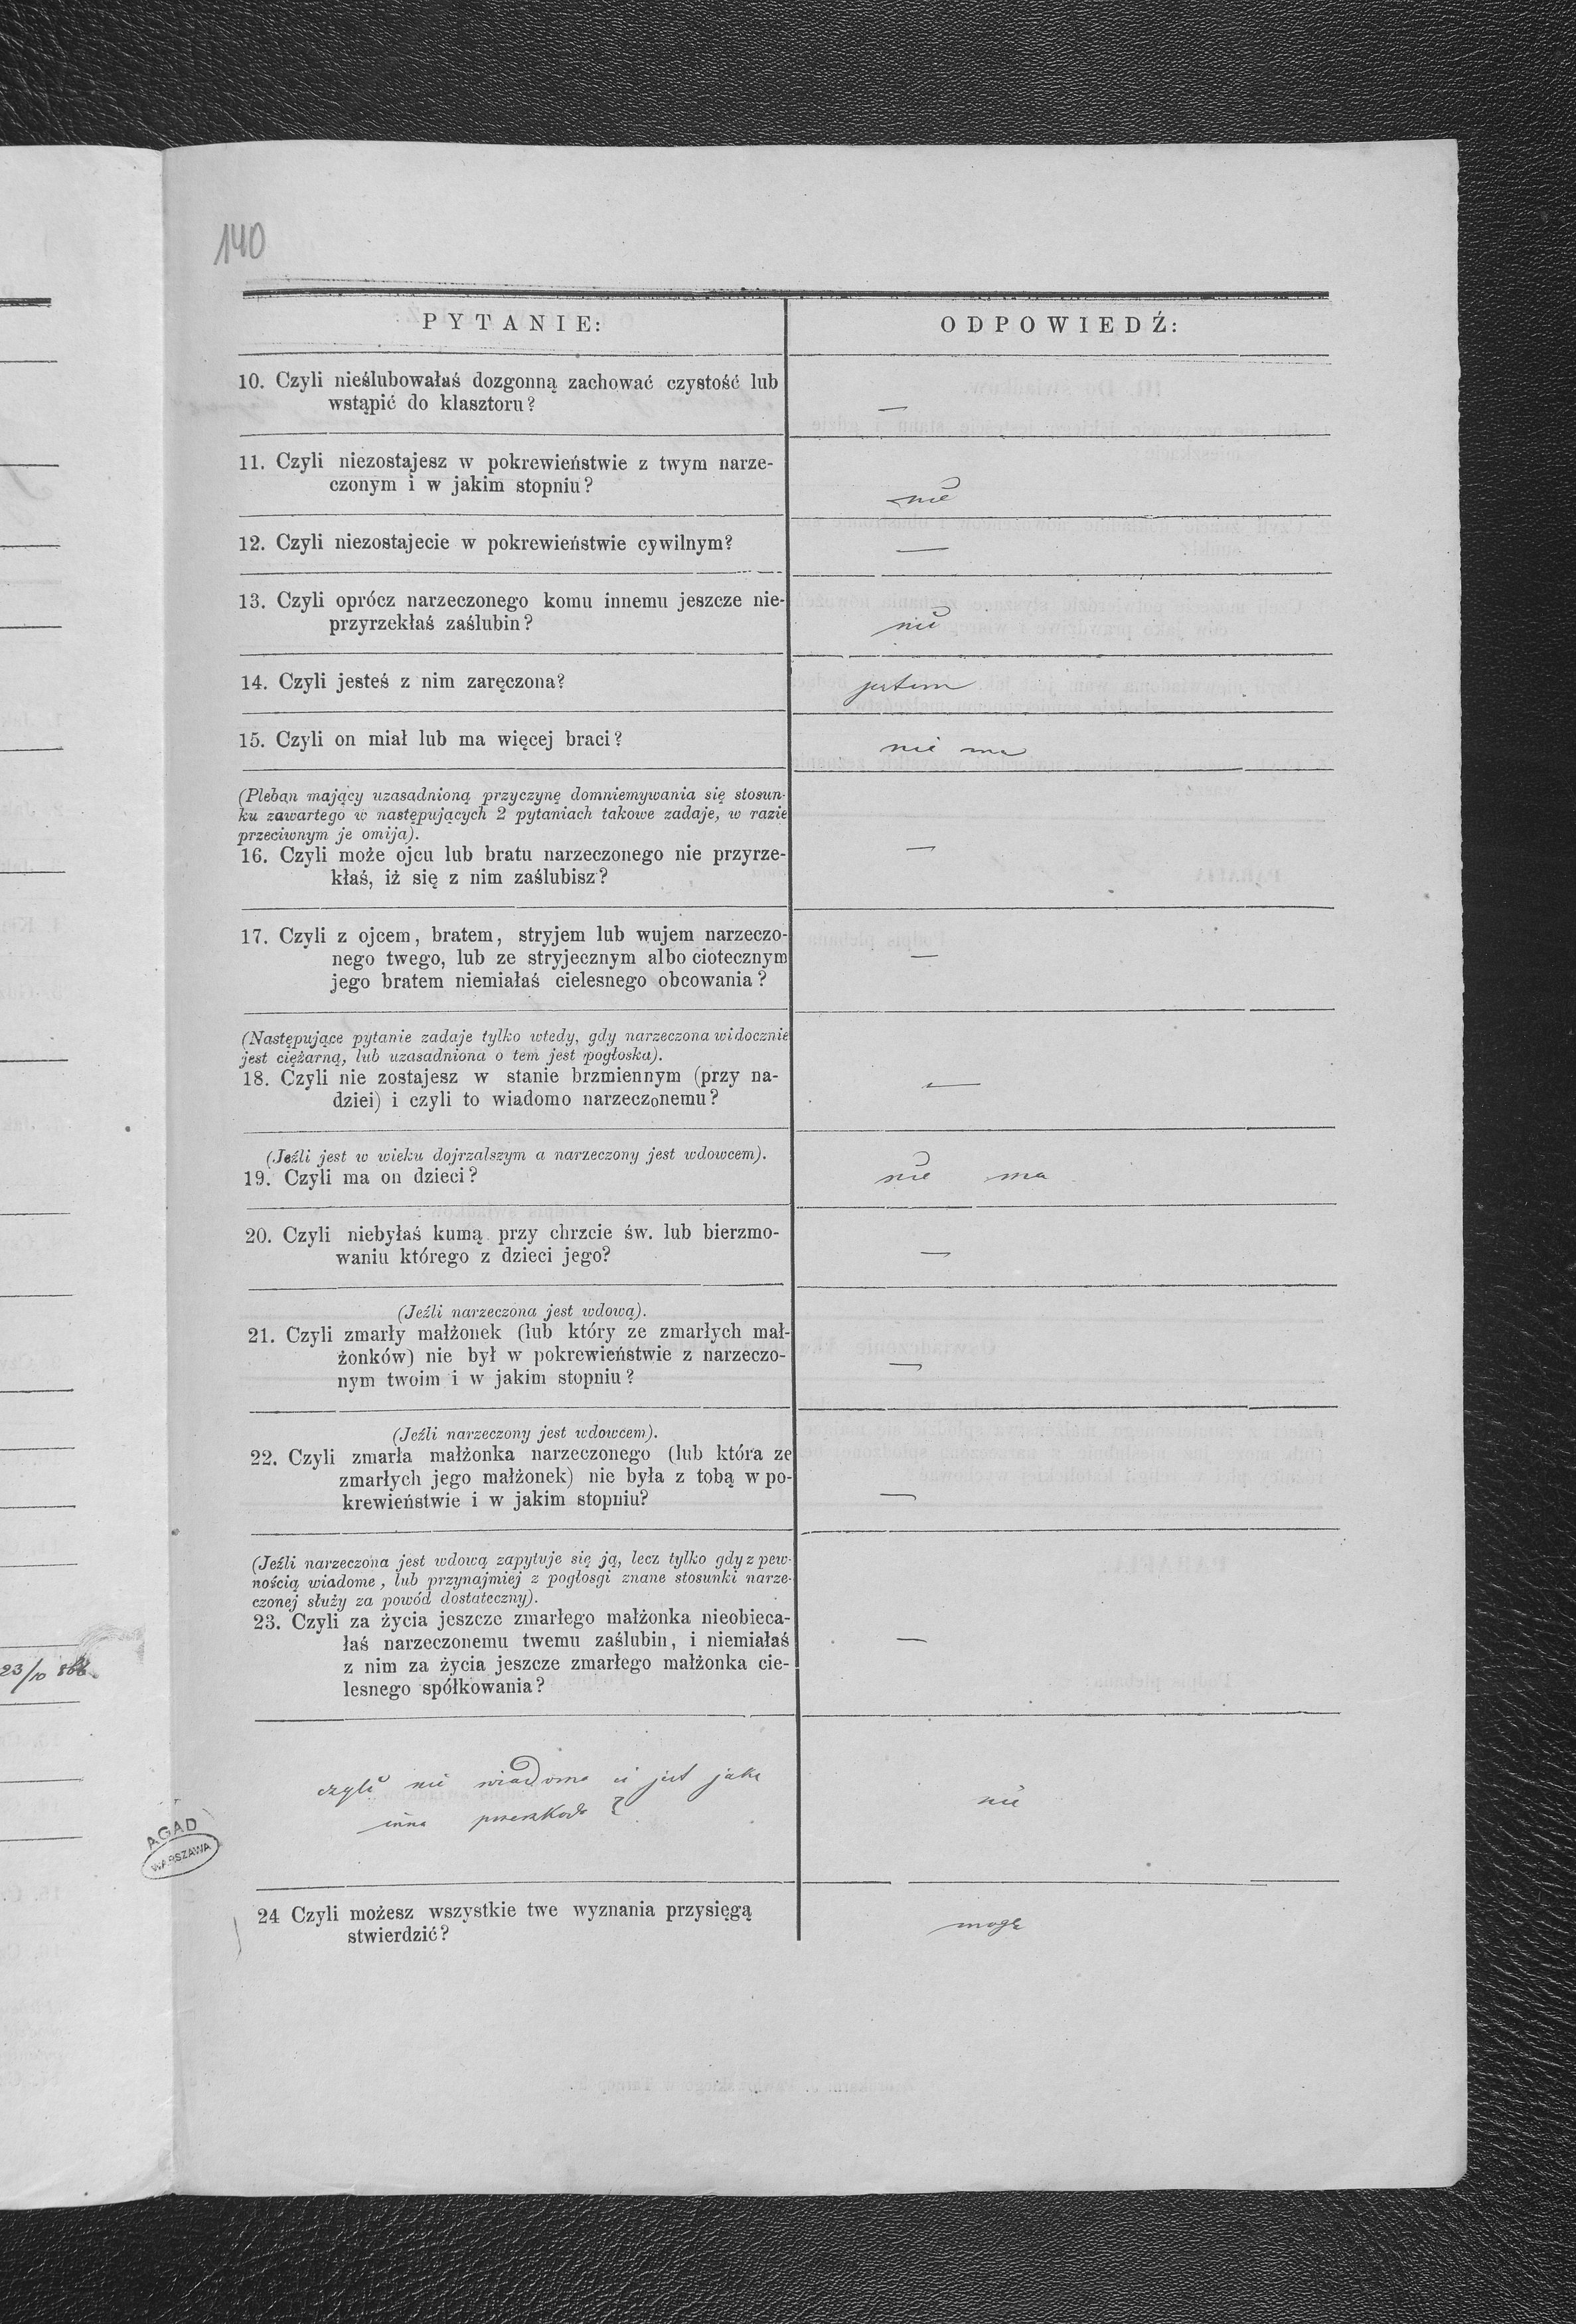 140
PYTANIE:
ODPOWIEDŹ:
10. Czyli nieślubowałaś dozgonną zachować czystość lub
wstąpić do klasztoru?
—
11. Czyli niezostajesz w pokrewieństwie z twym narze-
czonym i w jakim stopniu?
nie
12. Czyli niezostajecie w pokrewieństwie cywilnym?
—
13. Czyli oprócz narzeczonego komu innemu jeszcze nie-
przyrzekłaś zaślubin?
nie
14. Czyli jesteś z nim zaręczona?
jestem
15. Czyli on miał lub ma więcej braci?
nie ma
(Pleban mający uzasadnioną przyczynę domniemywania się stosun-
ku zawartego w następujących 2 pytaniach takowe zadaje, w razie
przeciwnym je omija).
16. Czyli może ojcu lub bratu narzeczonego nie przyrze-
kłaś, iż się z nim zaślubisz?
—
17. Czyli z ojcem, bratem, stryjem lub wujem narzeczo-
nego twego, lub ze stryjecznym albo ciotecznym
jego bratem niemiałaś cielesnego obcowania?
—
(Następujące pytanie zadaje tylko wtedy, gdy narzeczona widocznie
jest ciężarną, lub uzasadniona o tem jest pogłoska).
18. Czyli nie zostajesz w stanie brzmiennym (przy na-
dziei) i czyli to wiadomo narzeczonemu?
—
(Jeźli jest w wieku dojrzalszym a narzeczony jest wdowcem).
19. Czyli ma on dzieci?
nie ma
20. Czyli niebyłaś kumą przy chrzcie św. lub bierzmo-
waniu którego z dzieci jego?
—
(Jeźli narzeczona jest wdową).
21. Czyli zmarły małżonek (lub który ze zmarłych mał-
żonków) nie był w pokrewieństwie z narzeczo-
nym twoim i w jakim stopniu?
—
(Jeźli narzeczony jest wdowcem).
22. Czyli zmarła małżonka narzeczonego (lub która ze
zmarłych jego małżonek) nie była z tobą w po-
krewieństwie i w jakim stopniu?
—
(Jeźli narzeczona jest wdową zapytuje się ją, lecz tylko gdy z pew-
nością wiadome, lub przynajmiej z pogłosgi znane stosunki narze-
czonej służy za powód dostateczny).
23. Czyli za życia jeszcze zmarłego małżonka nieobieca-
łaś narzeczonemu twemu zaślubin, i niemiałaś
z nim za życia jeszcze zmarłego małżonka cie-
lesnego spółkowania?
—
czyli nie wiadoma ci jest jaka
inna przeszkoda?
nie
24 Czyli możesz wszystkie twe wyznania przysięgą
stwierdzić?
mogę
23/10 868
AGAD
WARSZAWA